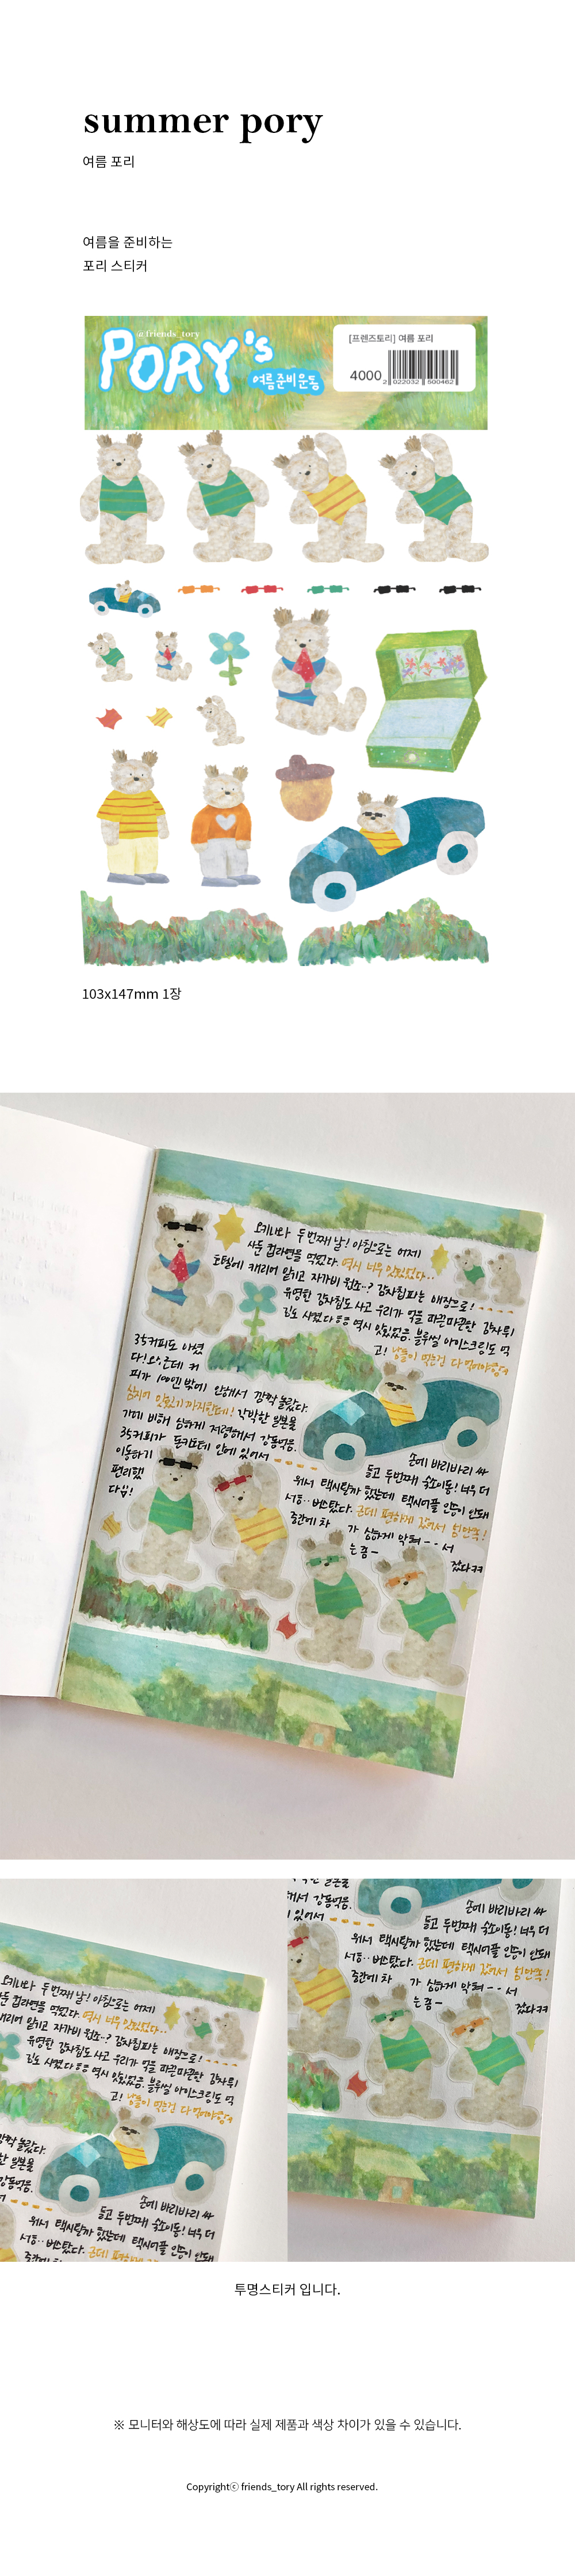 summer pory
여름 포리
여름을 준비하는
포리 스티커
@.friends_tory
PORY's
여름준비운동
[프렌즈토리] 여름 포리
4000
2 022032 500462
103x147mm 1장
오키나와 두번째 날! 아침으로는 어제
사둔 컵라면을 먹었다. 역시 너무 맛있었다..
호텔에 캐리어 맡기고 자가비 원쇼..? 감자칩파는 매장으로!
유명한 감자칩도 사고 우리가 먹을
역시 맛있었음. 블루씰 아이스크림도 먹
고!
35커피도 마셨
다!
근데 커
피가 100엔 밖에 안해서 깜짝 놀랐다.
심지어 맛있기까지한데! 각박한 일본물
가에 비해 심하게 저렴해서 감동먹음.
35커피가 돈키호테 안에 있어서
이동하기
편리했
다!
손에 바리바리 싸
들고 두번째 숙소이동! 너무 더
워서 택시탈까 했는데 택시어플 인증이 안돼
서.. 버스탔다. 근데 편하게 갔어서 넘만족!
중간에 차
가 심하게 막혀-- 서
는 좀 -
갔다ㅋㅋ
투명스티커 입니다.
※ 모니터와 해상도에 따라 실제 제품과 색상 차이가 있을 수 있습니다.
Copyrightⓒ friends_tory All rights reserved.